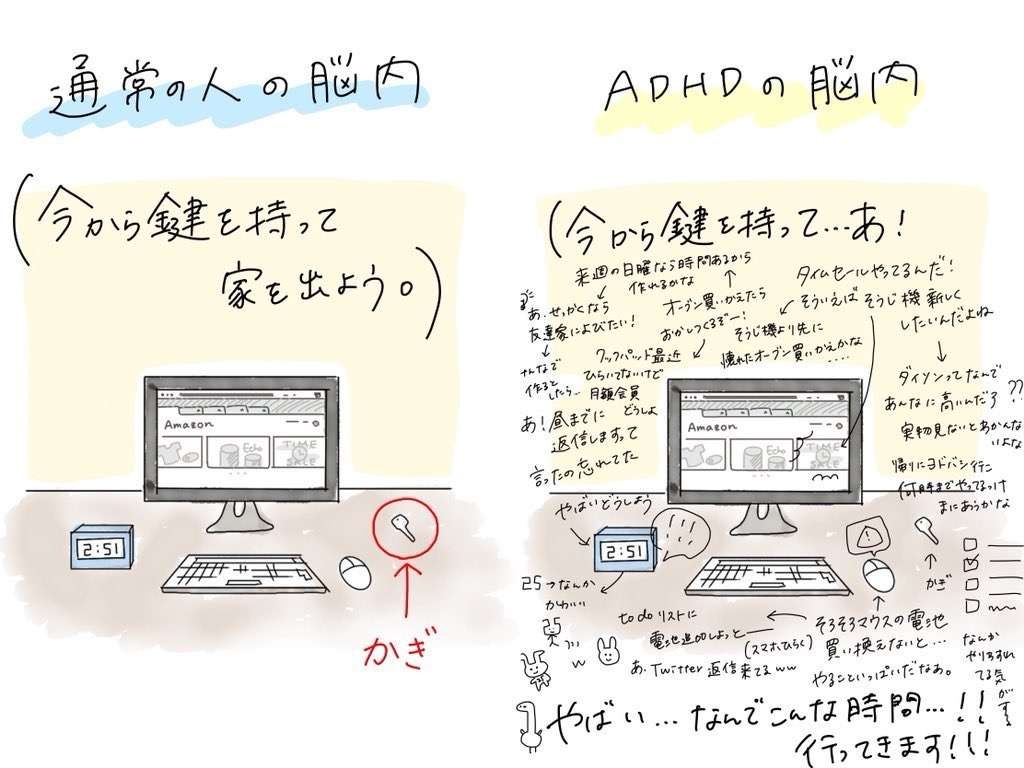 通常の人の脳内
(今から鍵を持って
家を出よう。)
Amazon
Echo
TIME
SALE
2:51
かぎ
ADHDの脳内
(今から鍵を持って…あ!
タイムセールやってるんだ!
そういえばそうじ機新しく
したいんだよね
ダイソンってなんで
あんなに高いんだろ??
実物見ないとあかんな
いよな
帰りにヨドバシ行こ
何時までやってるっけ
まにあうかな
そうじ機より先に
壊れたオーブン買いかえかな
....
オーブン買いかえたら
おかしつくるぞー!
来週の日曜なら時間あるから
作れるかな
あ、せっかくなら
友達家によびたい!
みんなで
作るとしたら…
クックパッド最近
ひらいてないけど
月額会員
どうしよ
あ!昼までに
返信しますって
言ったの忘れてた
やばいどうしよう
Amazon
Echo
TIME
SALE
2:51
!!!
!
かぎ
25ってなんか
かわいい
25
w
そろそろマウスの電池
買い換えないと…
やることいっぱいだなあ。
to do リストに
電池追加しよっと
(スマホひらく)
あ、Twitter返信来てるww
なんか
やりわすれ
てる気
がする
やばい…なんでこんな時間…!!
行ってきます!!!